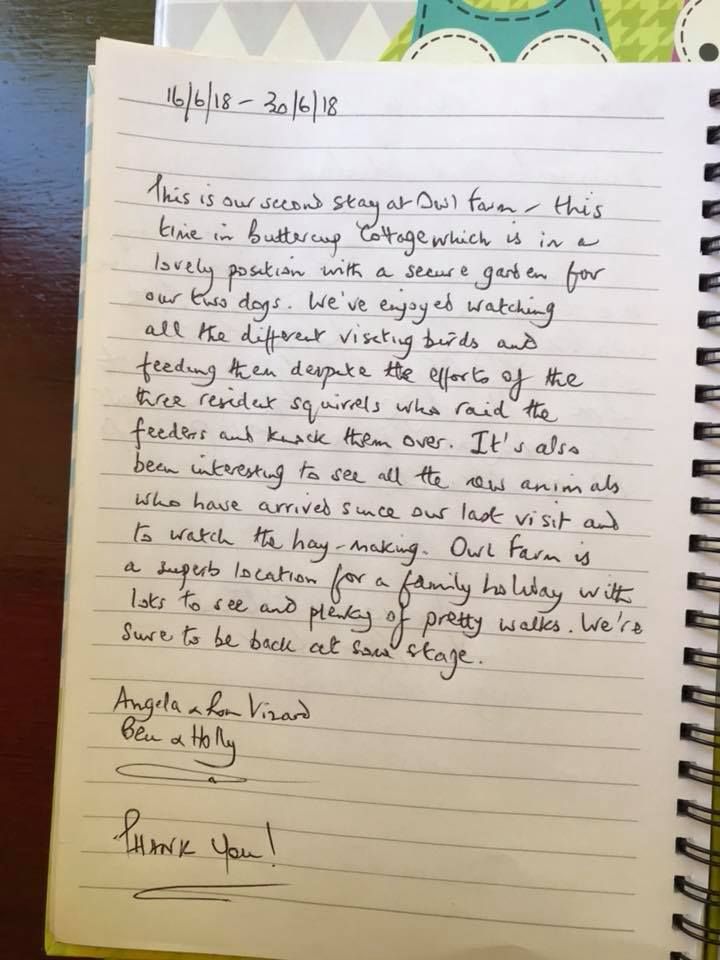 16/6/18 – 30/6/18
This is our second stay at Owl Farm – this
time in Buttercup Cottage which is in a
lovely position with a secure garden for
our two dogs. We've enjoyed watching
all the different visiting birds and
feeding them despite the efforts of the
three resident squirrels who raid the
feeders and knock them over. It's also
been interesting to see all the new animals
who have arrived since our last visit and
to watch the hay-making. Owl Farm is
a superb location for a family holiday with
lots to see and plenty of pretty walks. We're
sure to be back at some stage.
Angela & Ron Vizard
Ben & Holly
THANK You!